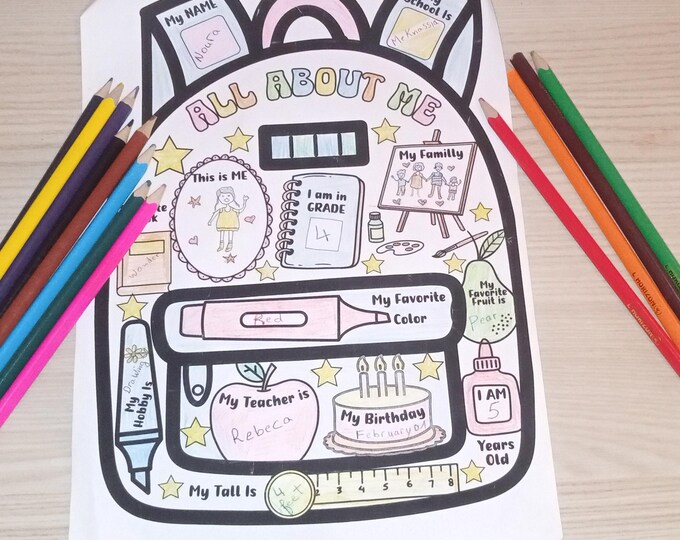 My NAME
Noura
School Is
Meknassia
ALL ABOUT ME
This is ME
I am in
GRADE
4
My Familly
Wonder
My
Favorite
Fruit is
Pear
My Favorite
Color
Red
My
Hobby Is
Drawing
My Teacher is
Rebeca
My Birthday
February 01
I AM
5
Years
Old
My Tall Is
4
2 3 4 5 6 7 8